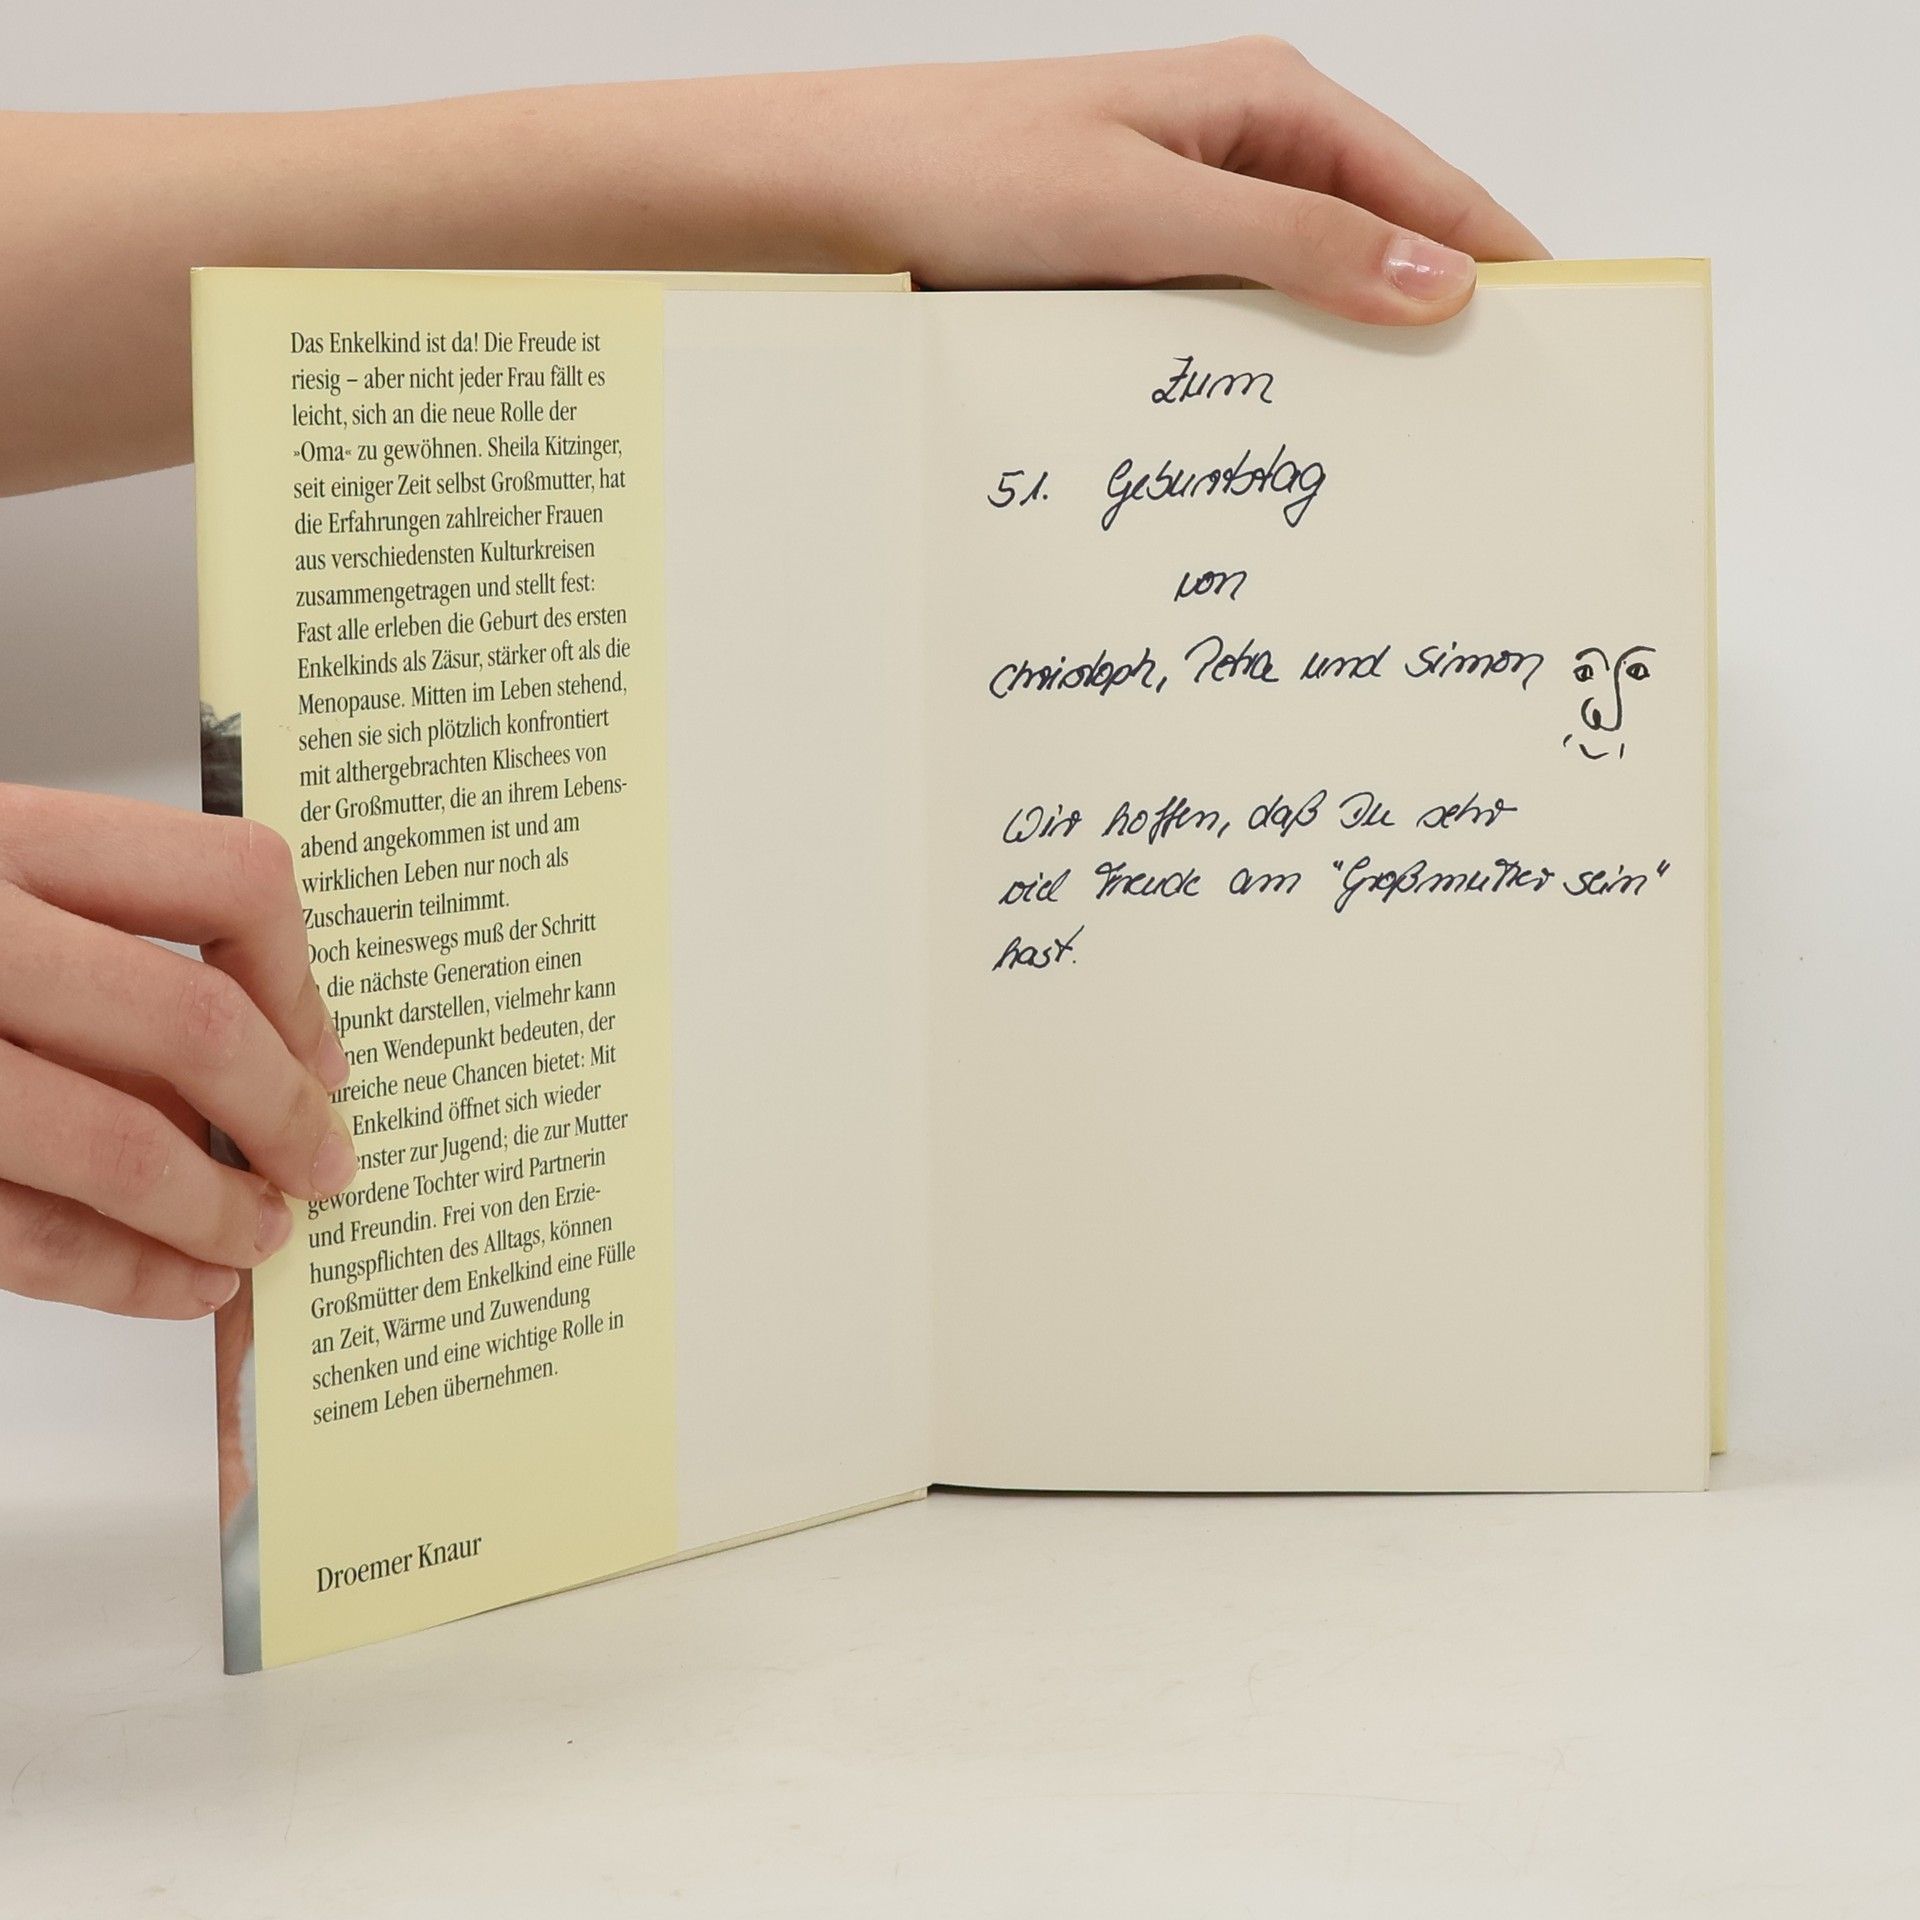 Das Enkelkind ist da! Die Freude ist
riesig – aber nicht jeder Frau fällt es
leicht, sich an die neue Rolle der
»Oma« zu gewöhnen. Sheila Kitzinger,
seit einiger Zeit selbst Großmutter, hat
die Erfahrungen zahlreicher Frauen
aus verschiedensten Kulturkreisen
zusammengetragen und stellt fest:
Fast alle erleben die Geburt des ersten
Enkelkinds als Zäsur, stärker oft als die
Menopause. Mitten im Leben stehend,
sehen sie sich plötzlich konfrontiert
mit althergebrachten Klischees von
der Großmutter, die an ihrem Lebens-
abend angekommen ist und am
wirklichen Leben nur noch als
Zuschauerin teilnimmt.
Doch keineswegs muß der Schritt
die nächste Generation einen
darstellen, vielmehr kann
Wendepunkt bedeuten, der
neue Chancen bietet: Mit
Enkelkind öffnet sich wieder
zur Jugend; die zur Mutter
gewordene Tochter wird Partnerin
und Freundin. Frei von den Erzie-
hungspflichten des Alltags, können
Großmütter dem Enkelkind eine Fülle
an Zeit, Wärme und Zuwendung
schenken und eine wichtige Rolle in
seinem Leben übernehmen.
Droemer Knaur
Zum
51. Geburtstag
von
Christoph, Petra und Simon
Wir hoffen, daß Du sehr
viel Freude am "Großmutter sein"
hast.